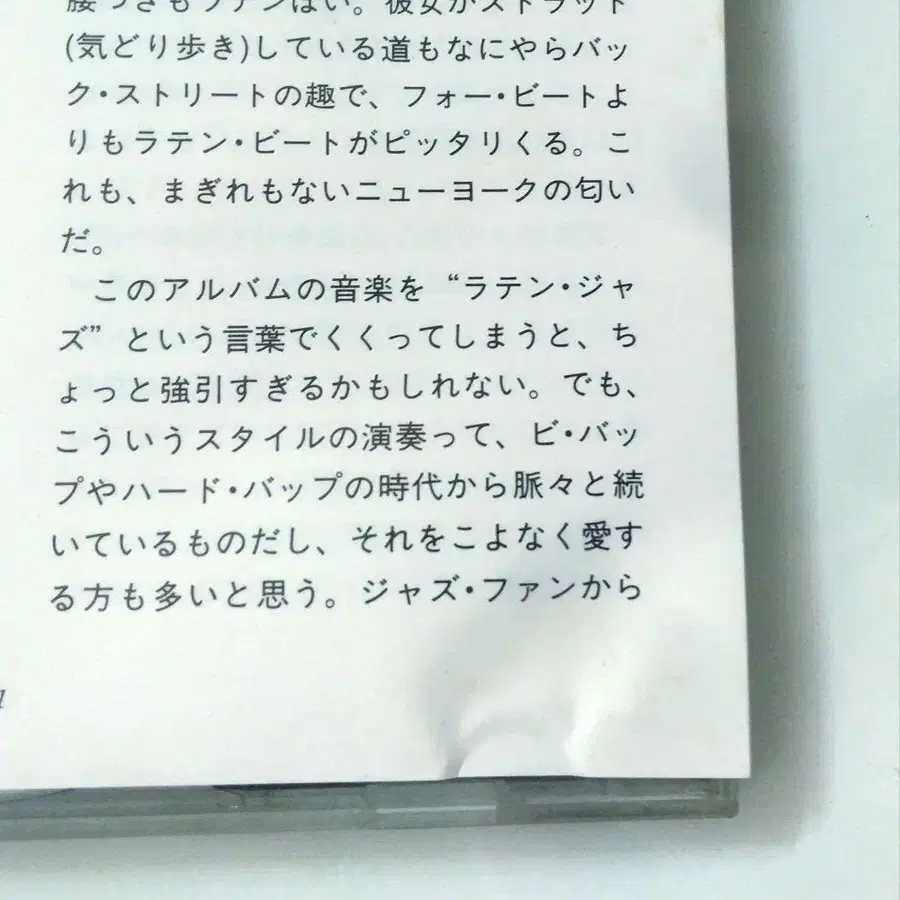 腰つきもラテンぽい。彼女がストラット
(気どり歩き)している道もなにやらバッ
ク・ストリートの趣で、フォー・ビートよ
りもラテン・ビートがピッタリくる。こ
れも、まぎれもないニューヨークの匂い
だ。
このアルバムの音楽を“ラテン・ジャ
ズ”という言葉でくくってしまうと、ち
ょっと強引すぎるかもしれない。でも、
こういうスタイルの演奏って、ビ・バッ
プやハード・バップの時代から脈々と続
いているものだし、それをこよなく愛す
る方も多いと思う。ジャズ・ファンから